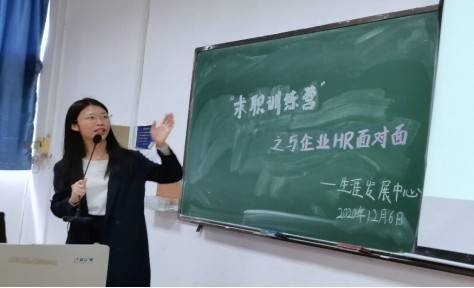 “求职训练营”
之与企业HR面对面
—生涯发展中心
2020年12月6日